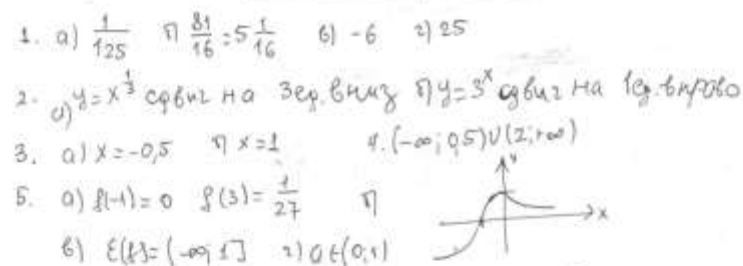 1. а) 1/125 б) 81/16 = 5 1/16 в) -6 г) 25
2. а) y = x^(1/3) сдвиг на 3ед. вниз б) y = 3^x сдвиг на 1ед. вправо
3. а) x = -0,5 б) x = 1 4. (-∞; 0,5)∪(2; +∞)
5. а) f(-1) = 0 f(3) = 1/27 б) y x
в) E(f) = (-∞; 1] г) a∈(0;1)